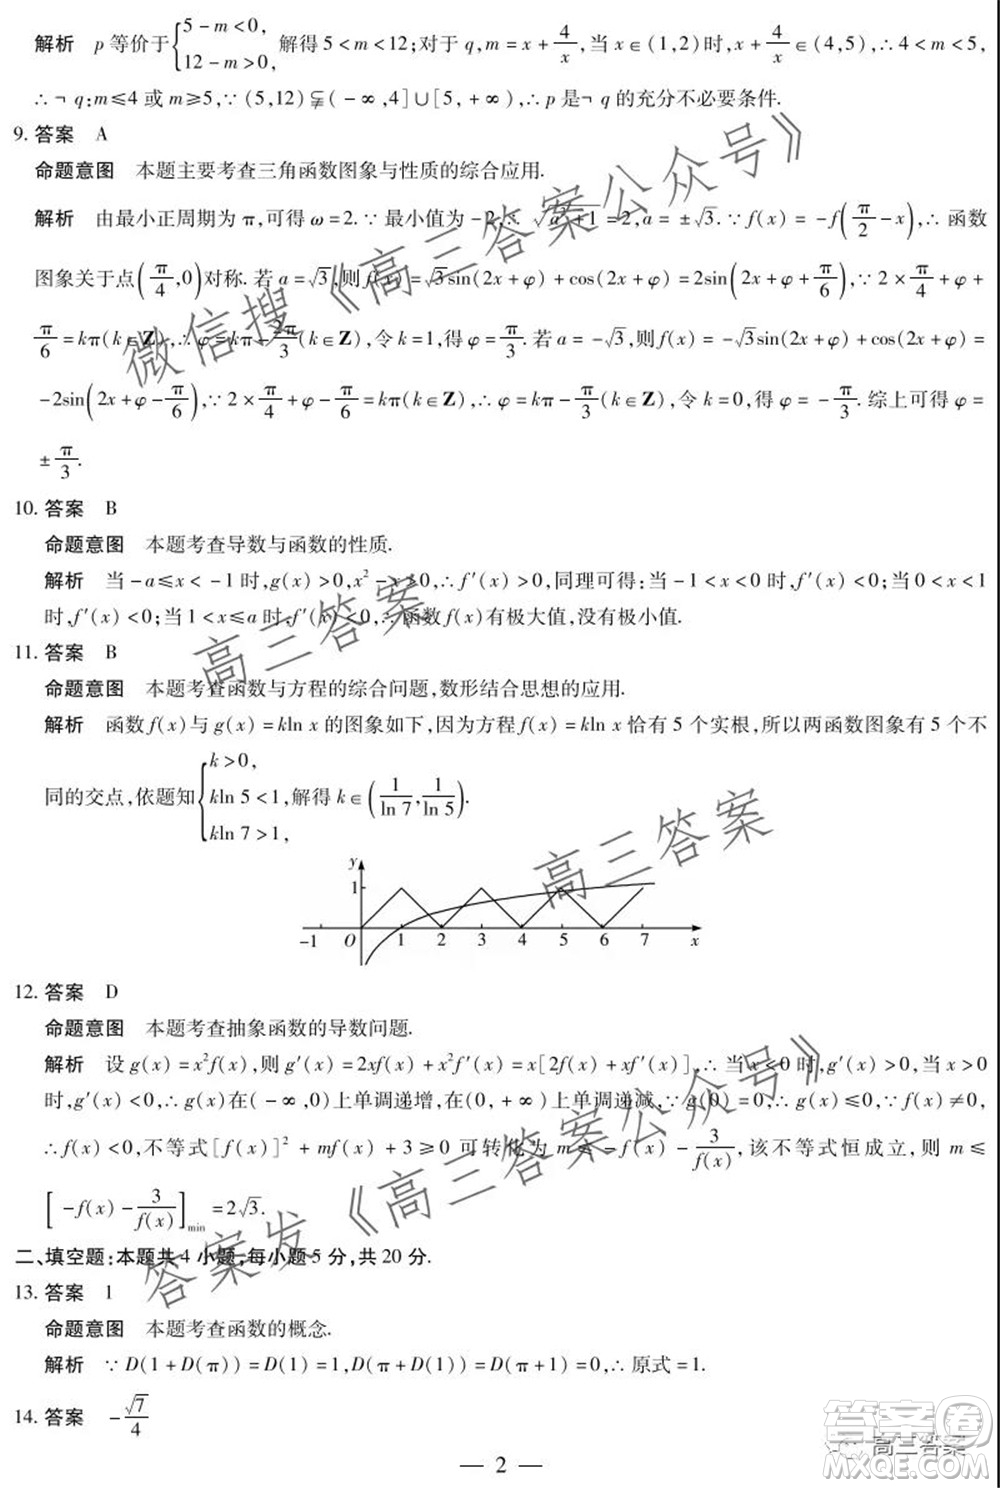 解析 p 等价于{5-m<0, 12-m>0, 解得 5<m<12;对于 q,m=x+4/x,当 x∈(1,2)时,x+4/x∈(4,5),∴4<m<5,
∴¬q:m≤4 或 m≥5,∵(5,12)⫋(-∞,4]∪[5,+∞),∴p 是¬q 的充分不必要条件.
9. 答案 A
命题意图 本题主要考查三角函数图象与性质的综合应用.
解析 由最小正周期为 π,可得 ω=2.∵最小值为-2,∴√(a²+1)=2,a=±√3.∵f(x)=-f(π/2-x),∴函数
图象关于点(π/4,0)对称.若 a=√3,则 f(x)=√3sin(2x+φ)+cos(2x+φ)=2sin(2x+φ+π/6),∵2×π/4+φ+
π/6=kπ(k∈Z),∴φ=kπ-2π/3(k∈Z),令 k=1,得 φ=π/3.若 a=-√3,则 f(x)=-√3sin(2x+φ)+cos(2x+φ)=
-2sin(2x+φ-π/6),∵2×π/4+φ-π/6=kπ(k∈Z),∴φ=kπ-π/3(k∈Z),令 k=0,得 φ=-π/3.综上可得 φ=
±π/3.
10. 答案 B
命题意图 本题考查导数与函数的性质.
解析 当-a≤x<-1时,g(x)>0,x²->0,∴f′(x)>0,同理可得:当-1<x<0时,f′(x)<0;当0<x<1
时,f′(x)<0;当1<x≤a时,f′(x)<0,∴函数f(x)有极大值,没有极小值.
11. 答案 B
命题意图 本题考查函数与方程的综合问题,数形结合思想的应用.
解析 函数f(x)与g(x)=kln x的图象如下,因为方程f(x)=kln x恰有5个实根,所以两函数图象有5个不
同的交点,依题知{k>0, kln 5<1, kln 7>1, 解得 k∈(1/ln 7,1/ln 5).
y
1
-1 O 1 2 3 4 5 6 7 x
12. 答案 D
命题意图 本题考查抽象函数的导数问题.
解析 设g(x)=x²f(x),则g′(x)=2xf(x)+x²f′(x)=x[2f(x)+xf′(x)],∴当x<0时,g′(x)>0,当x>0
时,g′(x)<0,∴g(x)在(-∞,0)上单调递增,在(0,+∞)上单调递减,∵g(0)=0,∴g(x)≤0,∵f(x)≠0,
∴f(x)<0,不等式[f(x)]²+mf(x)+3≥0可转化为m≤-f(x)-3/f(x),该不等式恒成立,则m≤
[-f(x)-3/f(x)]min=2√3.
二、填空题:本题共4小题,每小题5分,共20分.
13. 答案 1
命题意图 本题考查函数的概念.
解析 ∵D(1+D(π))=D(1)=1,D(π+D(1))=D(π+1)=0,∴原式=1.
14. 答案 -√7/4
— 2 —
微信搜《高三答案公众号》
高三答案
高三答案
答案发《高三答案公众号》
高三答案
答案卷
MXQE.COM